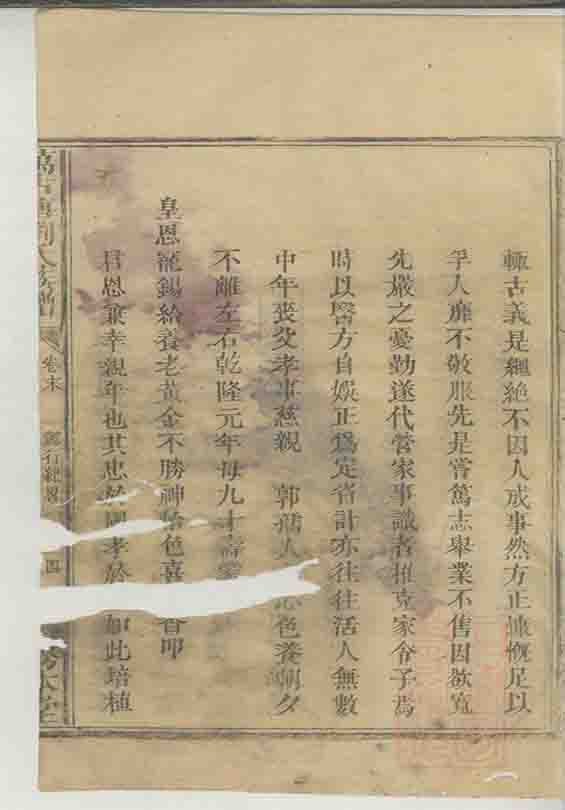 輙古義是繩絶不因人成事然方正慷慨足以
孚人靡不敬服先是嘗篤志舉業不售因欲寬
先嚴之憂勤遂代營家事識者推克家令子焉
時以醫方自娛正爲定省計亦往往活人無數
中年喪父孝事慈親 郭孺人 色養朝夕
不離左右乾隆元年母九十壽
皇恩寵錫給養老黃金不勝神 色喜 叩
君恩兼幸親年也其忠於國孝於 如此培植
氏 卷末 行紀畧 四 本堂